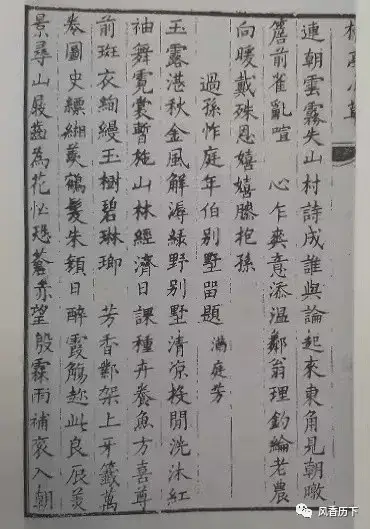 連朝雲霧失山村詩成誰與論起來東角見朝暾
簷前雀亂喧　心乍爽意添溫鄰翁理釣綸老農
向暖戴殊恩嬉嬉勝抱孫
過孫怍庭年伯別墅畱題　滿庭芳
玉露湛秋金風解溽綠野別墅清凉投閒洗沐紅
袖舞霓裳暫施山林經濟日課種卉養魚方喜尊
前斑衣絢縵玉樹碧琳瑯　芳香鄴架上牙籤萬
卷圖史縹緗羨鶴髮朱顏日醉霞觴趂此良辰美
景尋山屐齒為花忙恐蒼赤望殷霖雨補袞入朝
风香历下